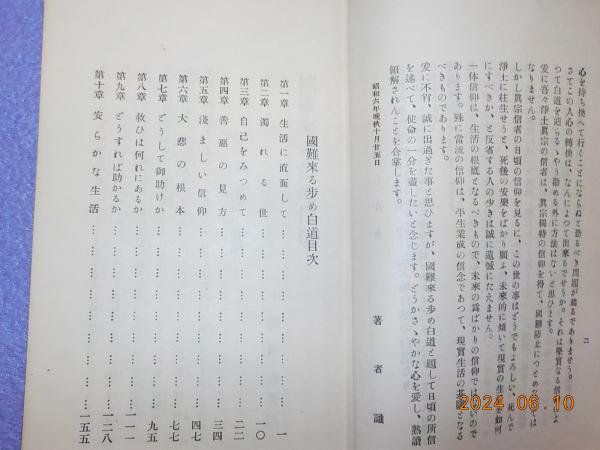 二
心を持ち換へて行くことにならぬと恐るべき問題が起るでありませう。
さてこの人心の轉換は、なんによつて出來るでせうか。それは堅實なる信仰によ
つて白道を辿らるゝやう勸める外に方法はないと思ひます。
爰に吾々淨土眞宗の信者は、眞宗獨特の信仰を得て、國難防止につとめなくては
なりません。
しかし眞宗信者の日頃の信仰を見るに、この世の事はどうでもよろしい、死んで
淨土に往生せうと、死後の安樂をばかり願ふ、未來的に傾いて現實の生活を如何
にすべきか、と反省する人の少きは誠に遺憾にたえません。
一体信仰は、生活の根底となるべきもので、未來の爲ばかりの信仰ではないので
あります。殊に當流の信仰は、平生業成の信念であつて、現實生活の基礎となる
べきものであります。
爰に不肖、誠に出過ぎた事と思ひますが、國難來る步め白道と題して日頃の所信
を述べて、使命の一分を盡したいと念じます。どうかさゝやかな心を愛し、熟讀
領解されんことを合掌します。
昭和六年晩秋十月廿五日
著者識
國難來る步め白道目次
第一章 生活に直面して…………一
第二章 濁れる世…………一〇
第三章 自己をみつめて…………二二
第四章 善惡の見方…………三四
第五章 淺ましい信仰…………四七
第六章 大悲の根本…………七七
第七章 どうして御助けか…………九五
第八章 救ひは何れにあるか…………一一一
第九章 どうすれば助かるか…………一二八
第十章 安らかな生活…………一五五
2024 06 10